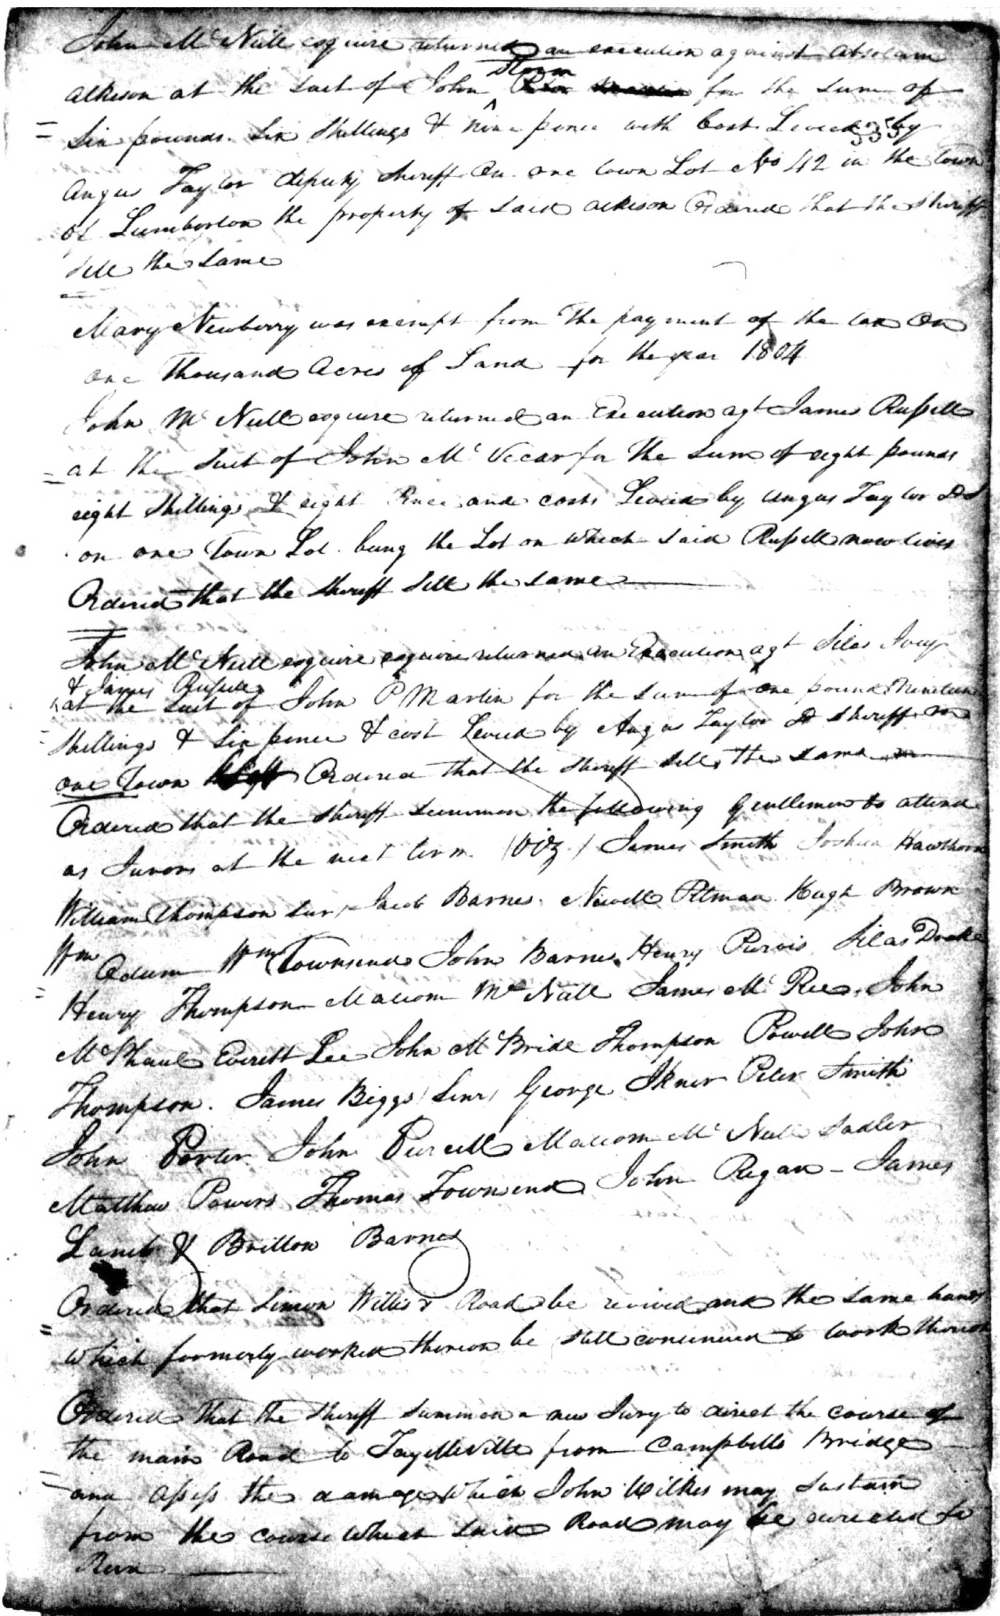 John Mc Neill esquire returned an execution against Absolam
Storm
atkeson at the suit of John for the sum of
Six pounds Six Shillings & nine pence with Cost Levied by
Angus Taylor deputy Sheriff On one town Lot No 42 in the town
of Lumberton the property of said atkeson Ordered that the Sheriff
Sell the same
Mary Newberry was exempt from the payment of the tax On
one Thousand Acres of Land for the year 1804
John Mc Neill esquire returned an Execution agt James Russell
at the Suit of John Mc Vicar for the Sum of eight pounds
eight Shillings & eight Pence and costs Levied by Angus Taylor DS
on one Town Lot being the Lot on which said Russell now lives
Ordered that the Sheriff Sell the same
John Mc Neill esquire esquire returned an Execution agt Silas Ivey
& James Russell
at the suit of John P Martin for the sum of one pound Nineteen
Shillings & Six pence & cost Levied by Angus Taylor D Sheriff on
one Town Lot Ordered that the Sheriff sell the same
Ordered that the Sheriff summon the following Gentlemen to attend
as Jurors at the next term (viz) James Smith Joshua Hawthorn
William Thompson sur, Jacob Barnes Newell Pitman Hugh Brown
Wm Odum Wm Townsend John Barnes Henry Purvis Silas Drake
Henry Thompson Malcom Mc Neill James Mc Ree John
McPhaul Everett Lee John McBride Thompson Powell John
Thompson. James Biggs Senr, George Ikner Peter Smith
John Porter John Purcell Malcom Mc Neill Sadler
Matthew Powers Thomas Townsend John Regan - James
Lamb & Britton Barnes
Ordered that Simon Willis's Road be revived and the same hands
which formerly worked thereon be still continued to work thereon
Ordered that the Sheriff summon a new Jury to direct the course of
the main Road to Fayetteville from Campbells Bridge
and assess the damage which John Wilkes may Sustain
from the course which said Road may be directed to
Run